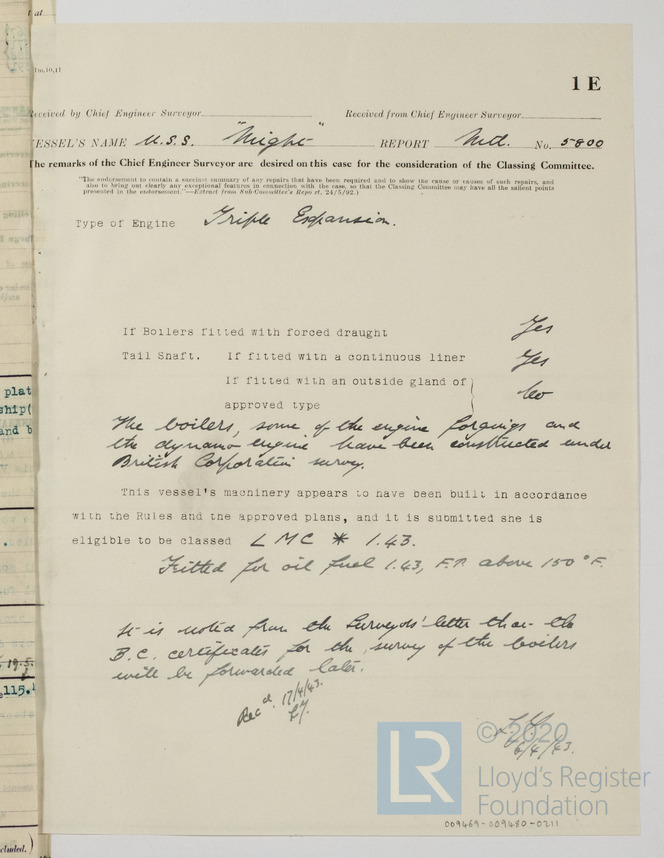 1m,10,41
1 E
Received by Chief Engineer Surveyor Received from Chief Engineer Surveyor
VESSEL'S NAME U.S.S. "Might" REPORT Mtl. No. 5800
The remarks of the Chief Engineer Surveyor are desired on this case for the consideration of the Classing Committee.
"The endorsement to contain a succinct summary of any repairs that have been required and to show the cause or causes of such repairs, and
also to bring out clearly any exceptional features in connection with the case, so that the Classing Committee may have all the salient points
presented in the endorsement."—Extract from Sub-Committee's Report, 24/5/92.)
Type of Engine Triple Expansion.
If Boilers fitted with forced draught Yes
Tail Shaft. If fitted with a continuous liner Yes
If fitted with an outside gland of
approved type No
The boilers, some of the engine forgings and
the dynamo engine have been constructed under
British Corporation survey.
This vessel's machinery appears to have been built in accordance
with the Rules and the approved plans, and it is submitted she is
eligible to be classed LMC * 1.43.
Fitted for oil fuel 1.43, F.P. above 150°F.
It is noted from the Surveyors' letter that the
B.C. certificates for the survey of the boilers
will be forwarded later.
Recd. 17/4/43.
6/4/43.
© 2020
LR
Lloyd's Register
Foundation
009469-009480-0211
plat
ship(
and b
19.5.
115.
cluded.)